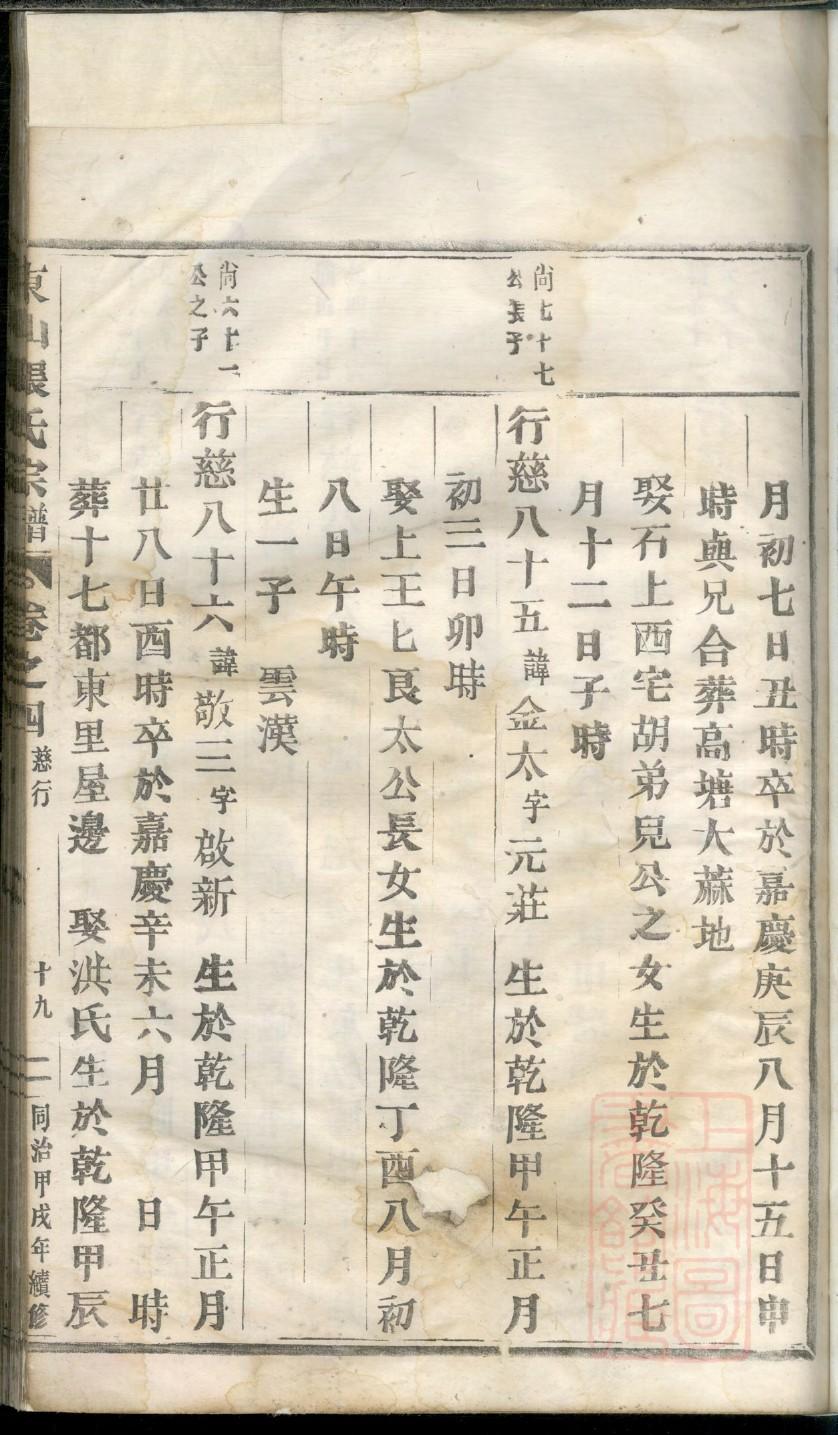 月初七日丑時卒於嘉慶庚辰八月十五日申
時與兄合葬高塘大蔴地
娶石上西宅胡弟兒公之女生於乾隆癸丑七
月十二日子時
尚七十七
公長子
行慈八十五諱金太字元莊 生於乾隆甲午正月
初三日卯時
娶上王匕良太公長女生於乾隆丁酉八月初
八日午時
生一子 雲漢
尚六十一
公之子
行慈八十六諱敬三字啟新 生於乾隆甲午正月
廿八日酉時卒於嘉慶辛未六月 日 時
葬十七都東里屋邊 娶洪氏生於乾隆甲辰
東山張氏宗譜 卷之四 慈行 十九 同治甲戌年續修
上海圖